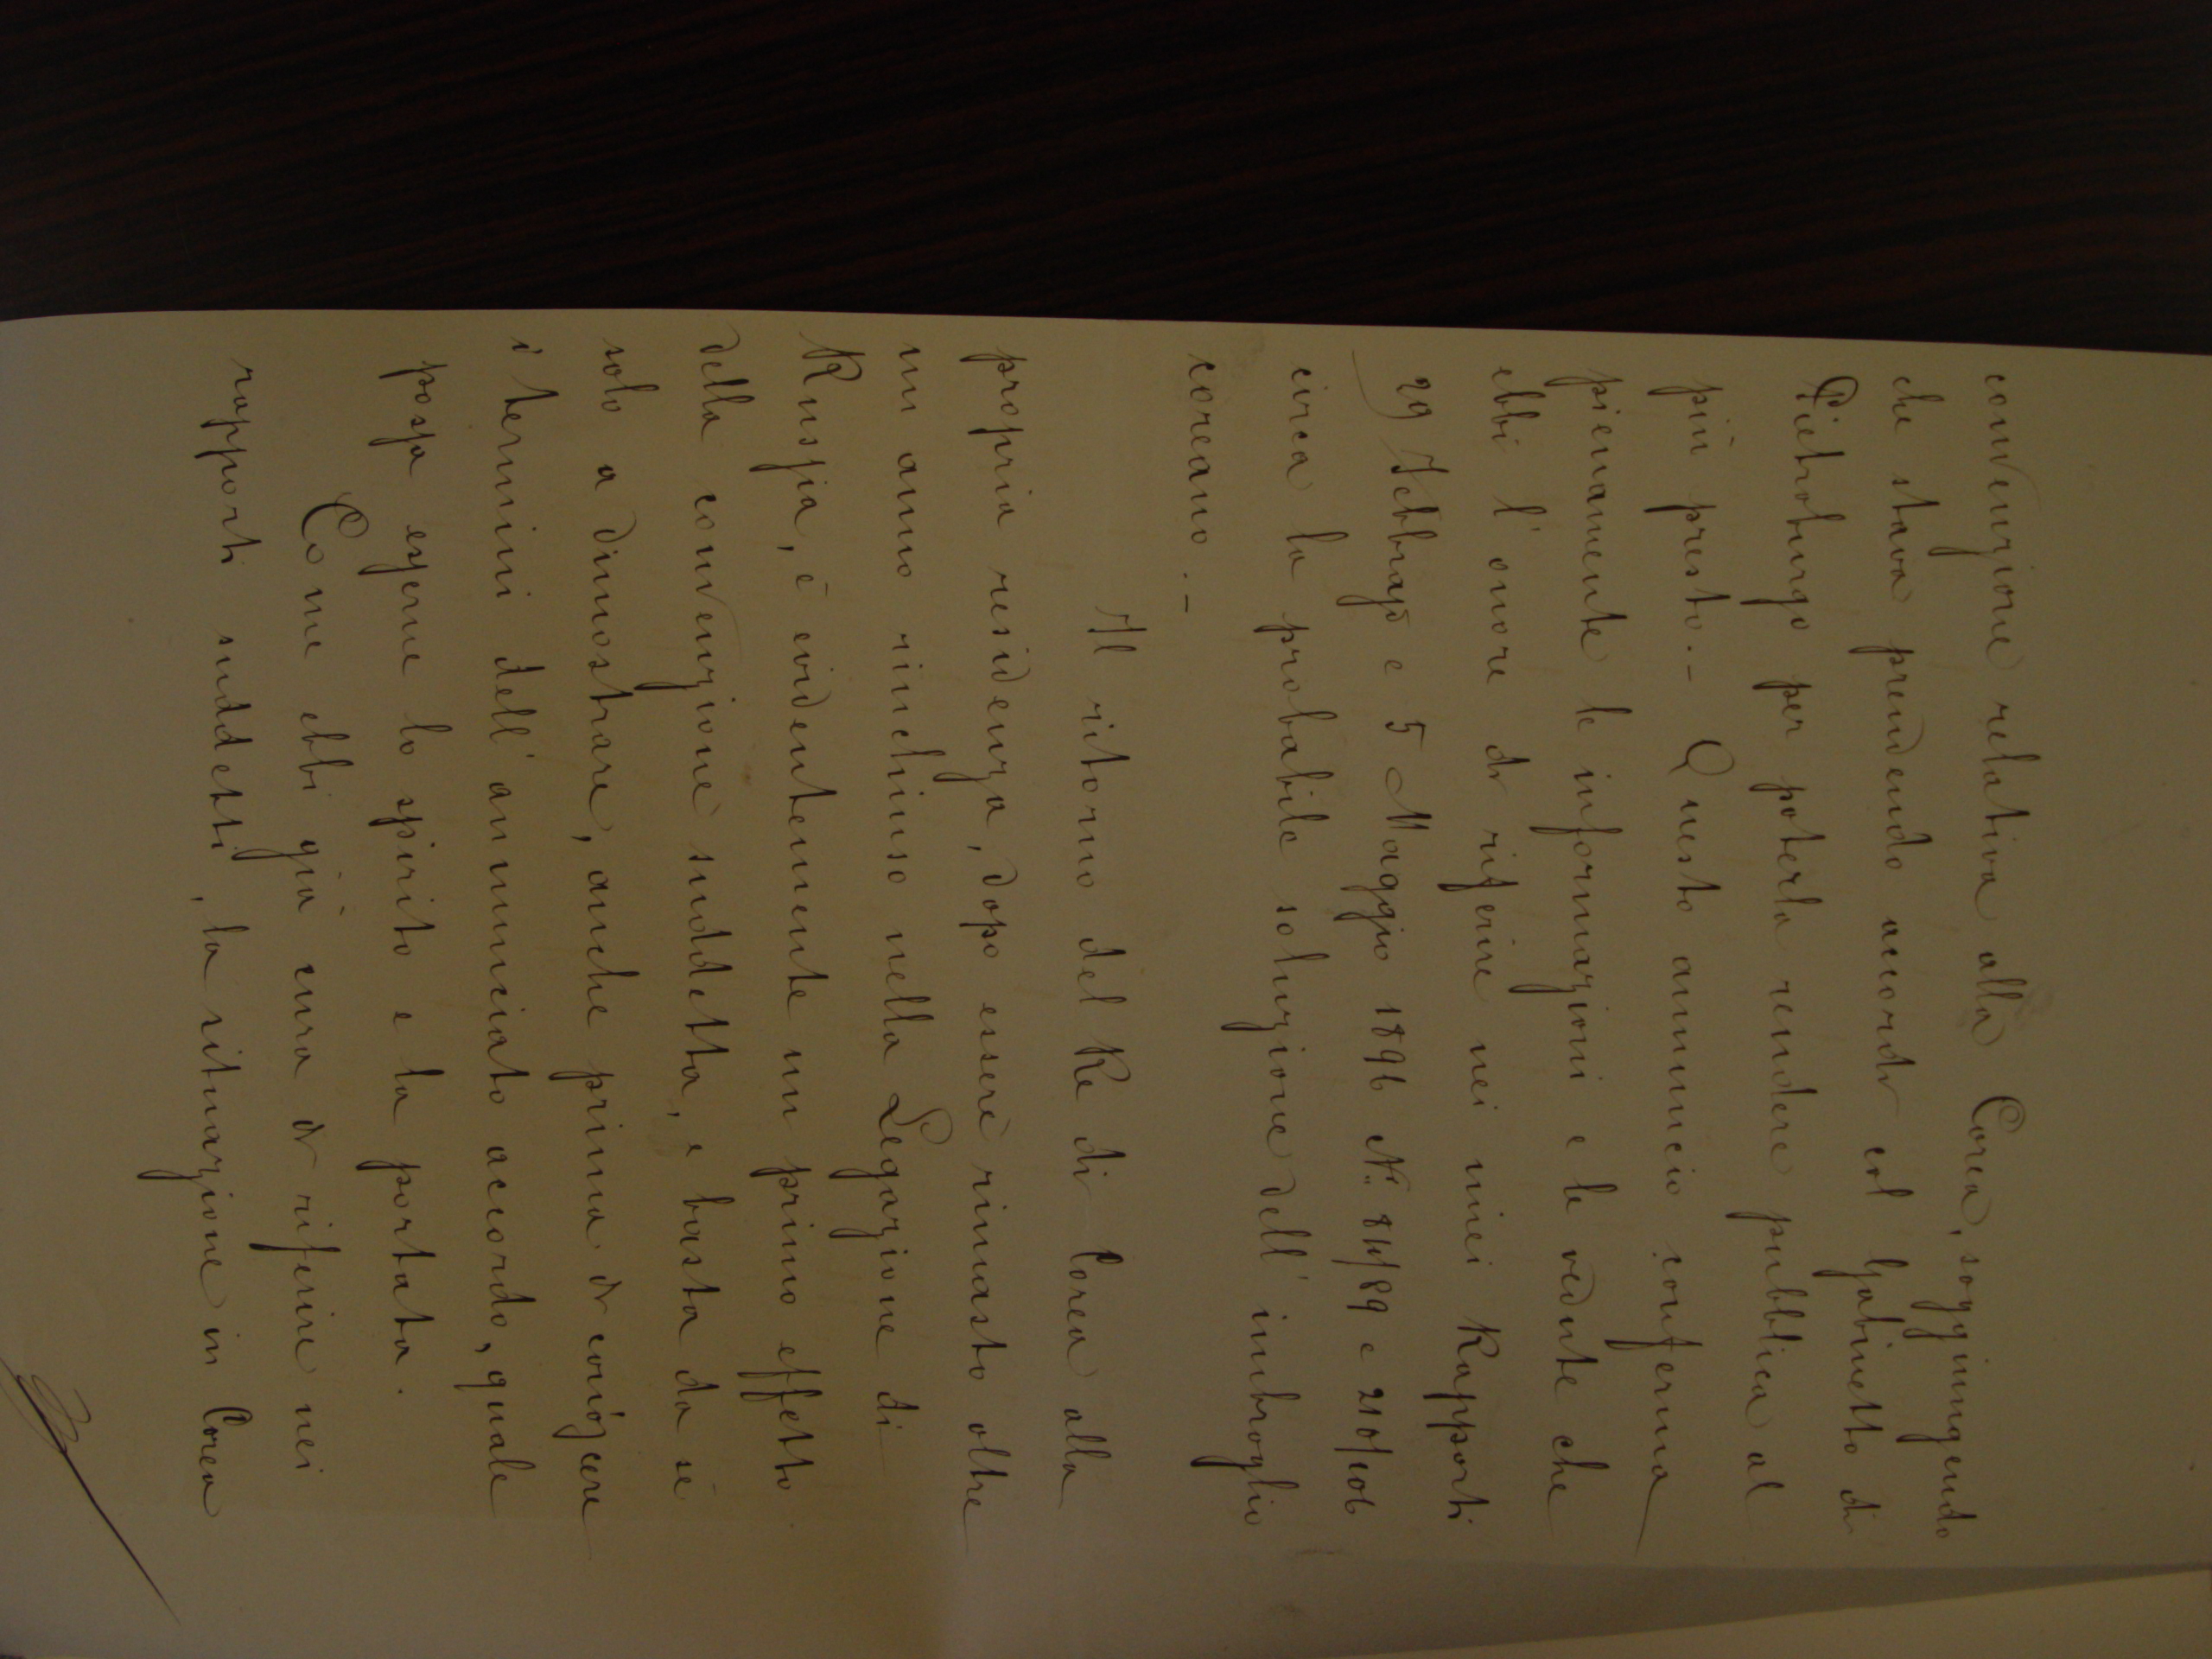 convenzione relativa alla Corea, soggiungendo
che stava prendendo accordi col Gabinetto di
Pietroburgo per poterla rendere pubblica al
più presto. - Questo annuncio conferma
pienamente le informazioni e le vedute che
ebbi l'onore di riferire nei miei Rapporti
29 Febbrajo e 5 Maggio 1896 N.
circa la probabile soluzione dell'imbroglio
coreano. -
Il ritorno del Re di Corea alla
propria residenza, dopo essere rimasto oltre
un anno rinchiuso nella Legazione di
Russia, è evidentemente un primo effetto
della convenzione suddetta, e basta da sè
solo a dimostrare, anche prima di conoscere
i termini dell'annunciato accordo, quale
possa esserne lo spirito e la portata.
Come ebbi già cura di riferire nei
rapporti suddetti, la situazione in Corea